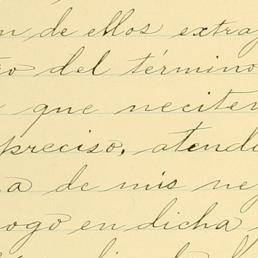 n de ellos extraj
to del término
que neciten
preciso, atendi
a de mis ne
ogo en dicha